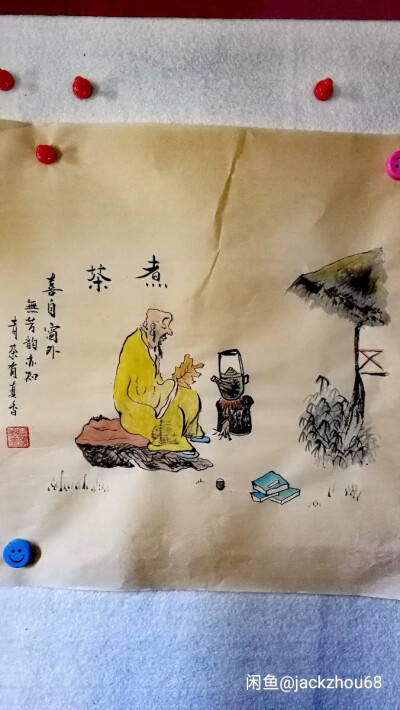 煮茶
喜自窗外
無韵亦知
青有真香
闲鱼@jackzhou68